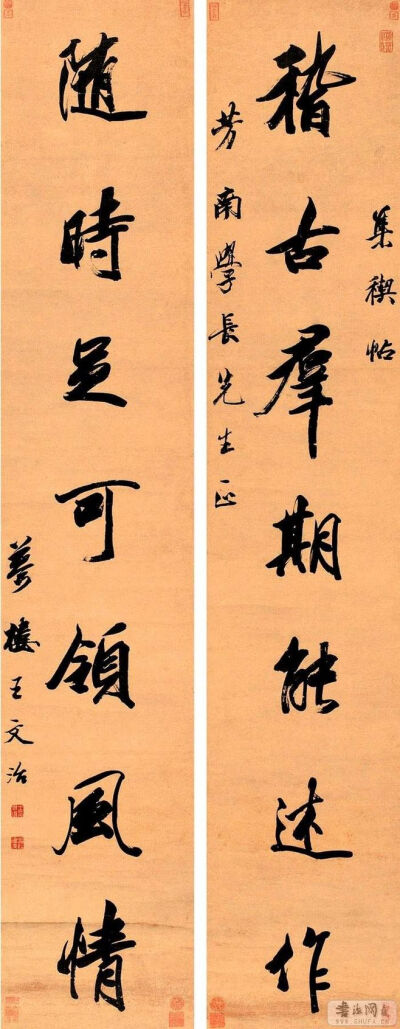 集禊帖
稽古羣期能述作
芳南學長先生正
随時足可領風情
夢樓王文治